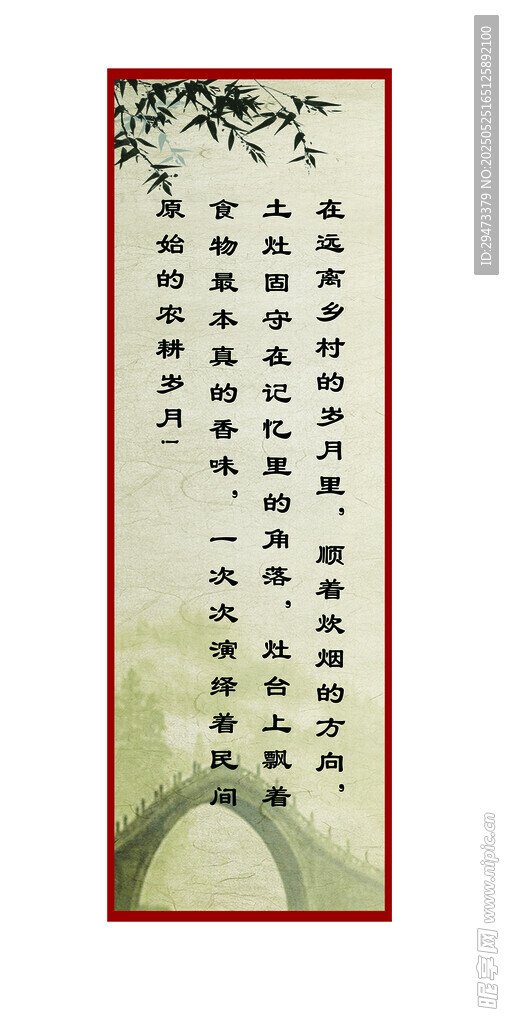 在远离乡村的岁月里，顺着炊烟的方向，
土灶固守在记忆里的角落，灶台上飘着
食物最本真的香味，一次次演绎着民间
原始的农耕岁月！
ID:29473379 NO:20250525165125892100
昵享网 www.nipic.cn